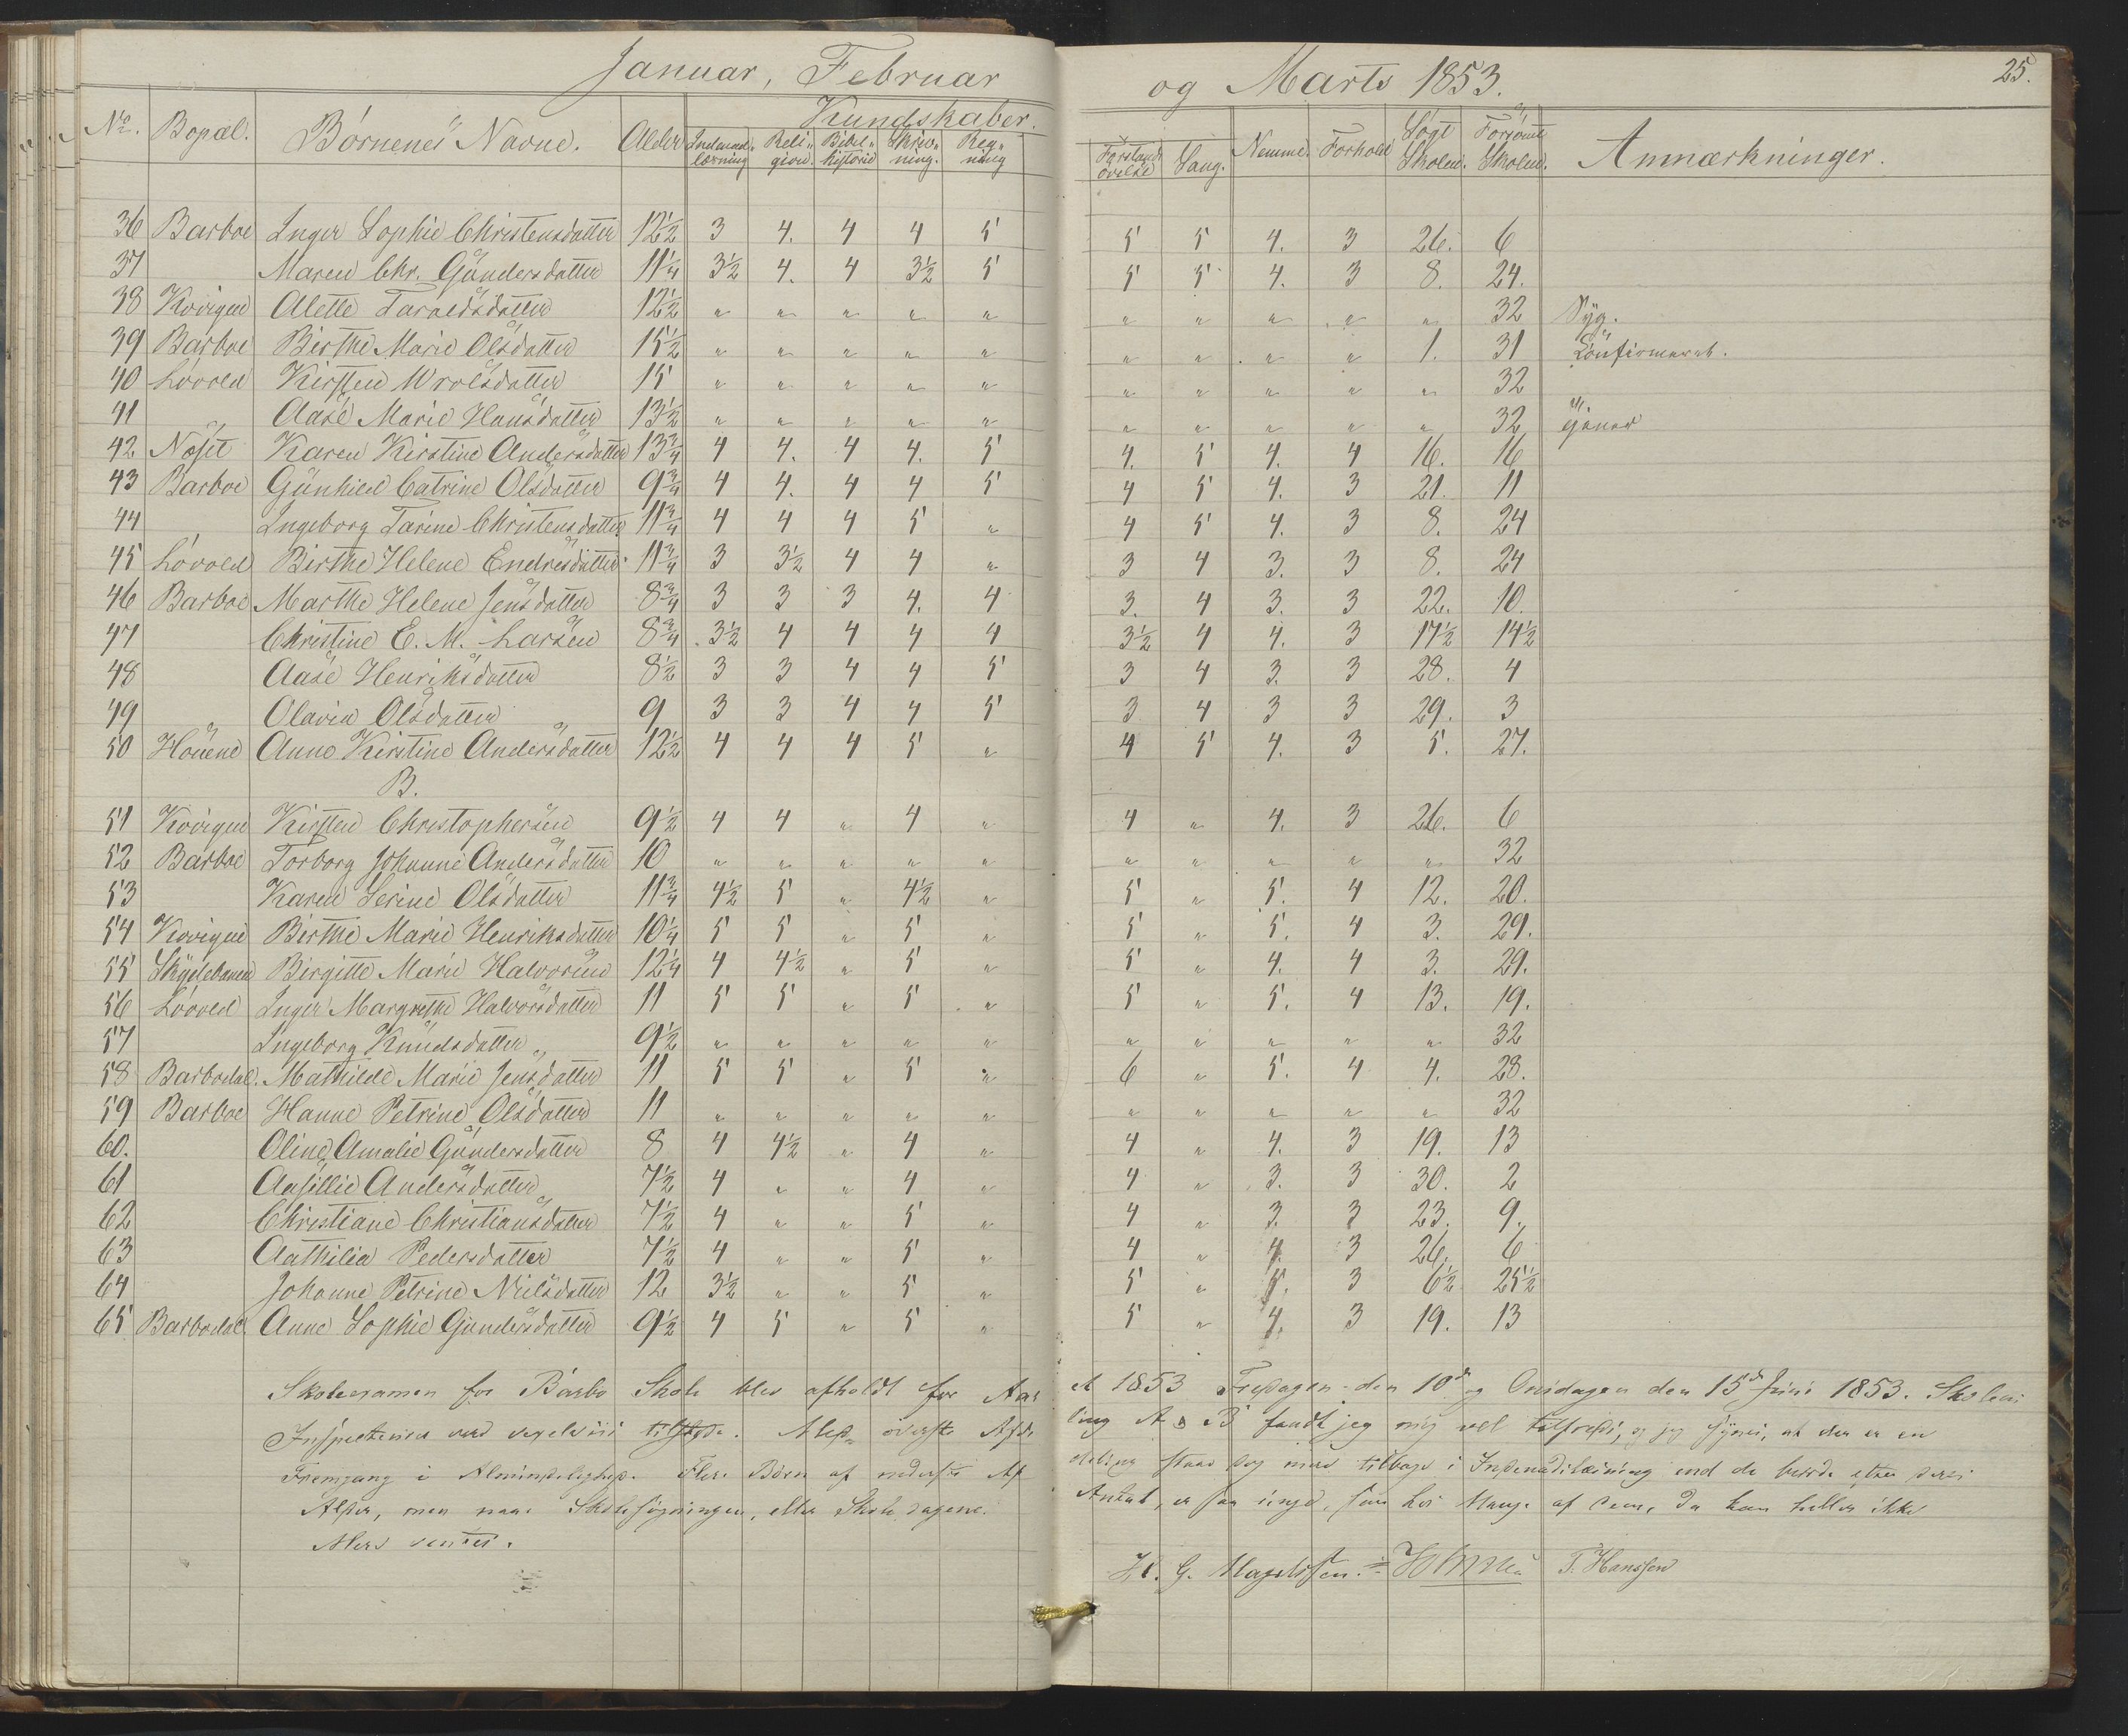 Januar, Februar og Marts 1853. 25.
Kundskaber.
No. Bopæl. Børnenes Navne. Alder Indenad-læsning Reli-gion Bibel-historie Skriv-ning. Reg-ning Forstands øvelse Sang. Nemme. Forhold Søgt Skolen. Forsømt Skolen. Anmærkninger.
36 Barboe Inger Sophie Christensdatter 12½ 3 4. 4 4 5 5 5 4. 3 26. 6
37 Maren Chr. Gundersdatter 11¼ 3½ 4. 4 3½ 5 5 5 4. 3 8. 24.
38 Kovigen Alette Taraldsdatter 12½ " " " " " " " " " " 32 Syg.
39 Barboe Birthe Marie Olsdatter 15½ " " " " " " " " " 1. 31 Confirmeret.
40 Løvold Kirsten Wrolsdatter 15 " " " " " " " " " " 32
41 Aase Marie Hansdatter 13½ " " " " " " " " " " 32 tjener
42 Nøset Karen Kirstine Andersdatter 13¾ 4 4. 4 4. 5 4. 5 4. 4 16. 16
43 Barboe Gunhild Catrine Olsdatter 9¾ 4 4. 4 4 5 4 5 4. 3 21. 11
44 Ingeborg Tarine Christensdatter 11¾ 4 4 4 5 " 4 5 4. 3 8. 24
45 Løvold Birthe Helene Endresdatter 11¾ 3 3½ 4 4 " 3 4 3. 3 8. 24
46 Barboe Marthe Helene Jensdatter 8¾ 3 3 3 4. 4 3. 4 3. 3 22. 10.
47 Christine E. M. Larsen 8¾ 3½ 4 4 4 4 3½ 4 4. 3 17½ 14½
48 Aase Henriksdatter 8½ 3 3 4 4 5 3 4 3. 3 28. 4
49 Olavia Olsdatter 9 3 3 4 4 5 3 4 3 3 29. 3
50 Houene Anne Kirstine Andersdatter 12½ 4 4 4 5 " 4 5 4. 3 5. 27.
B.
51 Kovigen Kirsten Christophersen 9½ 4 4 " 4 " 4 " 4. 3 26. 6
52 Barboe Torborg Johanne Andersdatter 10 " " " " " " " " " " 32
53 Karen Serine Olsdatter 11¾ 4½ 5 " 4½ " 5 " 5. 4 12. 20.
54 Kovigen Birthe Marie Henriksdatter 10¼ 5 5 " 5 " 5 " 5. 4 3. 29.
55 Skydebanen Birgitte Marie Halvorsen 12¼ 4 4½ " 5 " 5 " 4. 4 3. 29.
56 Løvold Inger Margrethe Halvorsdatter 11 5 5 " 5 " 5 " 5. 4 13. 19.
57 Ingeborg Knudsdatter 9½ " " " " " " " " " " 32
58 Barbodal. Mathilde Marie Jensdatter 11 5 5 " 5 " 6 " 5. 4 4. 28.
59 Barboe Hanne Petrine Olsdatter 11 " " " " " " " " " " 32
60. Oline Amalie Gundersdatter 8 4 4½ " 4 " 4 " 4. 3 19. 13
61 Aasillie Andersdatter 7½ 4 " " 4 " 4 " 3. 3 30. 2
62 Christiane Christiansdatter 7½ 4 " " 5 " 4 " 3. 3 23. 9.
63 Aathilia Pedersdatter 7½ 4 " " 5 " 4 " 4. 3 26. 6
64 Johanne Petrine Nielsdatter 12 3½ " " 5 " 5 " 5. 3 6½ 25½
65 Barbodal. Anne Sophie Gundersdatter 9½ 4 5 " 5 " 5 " 4. 3 19. 13
Skoleexamen for Barbo Skole blev afholdt for Aaret 1853 Fredagen den 10de og Onsdagen den 15de Juni 1853. Skolens
Inspecteuren var tilstede. øverste Afdeling A & B fandt jeg mig vel tilfreds, og jeg synes, at der er en
Fremgang i Almindelighed. Flere Børn af nederste Afdeling staae dog mere tilbage i Indenadslæsning end de burde efter deres
Alder, men naar Skolesøgningen, eller Skoledagene Antal, er saa ringe, som hos Mange af dem, da kan heller ikke
Mere ventes.
H. G. Magelssen. T. Hanssen